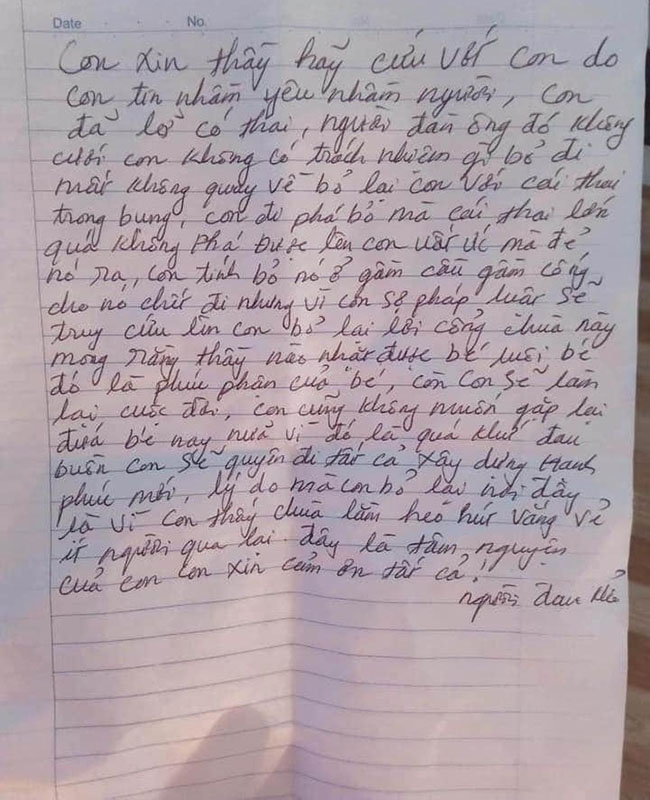 Date . . . No.
Con xin thầy hãy cứu với con do
con tin nhầm yêu nhầm người, con
đã lở có thai, người đàn ông đó không
cưới con không có trách nhiệm gì bỏ đi
mất không quay về bỏ lại con với cái thai
trong bụng, con đi phá bỏ mà cái thai lớn
quá không phá được lên con uất ức mà đẻ
nó ra, con tính bỏ nó ở gầm cầu gầm cống
cho nó chết đi nhưng vì con sợ pháp luật sẽ
truy cứu lên con bỏ lại lối cổng chùa này
mong rằng thầy nào nhặt được bé nuôi bé
đó là phúc phận của "bé", còn con sẽ làm
lại cuộc đời, con cũng không muốn gặp lại
đứa bé nay nưa vì đó là quá khứ đau
buồn con sẽ quyên đi tất cả xây dựng hạnh
phúc mới, lý do mà con bỏ lại nơi đây
là vì con thấy chùa lằm heo hút vắng vẻ
ít người qua lai. đây là tâm nguyện
của con con xin cảm ơn tất cả!
người đau khổ